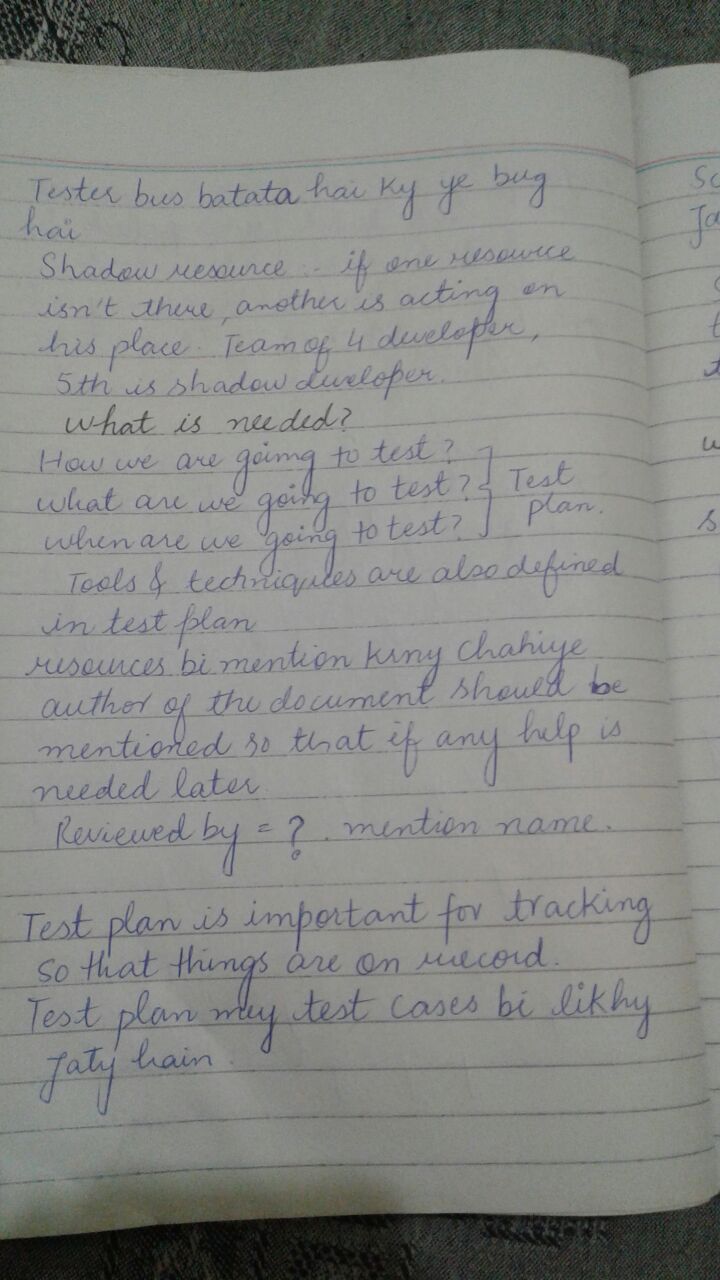 Tester bus batata hai ky ye bug
hai
Shadow resource .. if one resource
isn't there, another is acting on
his place. Team of 4 developer,
5th is shadow developer.
what is needed?
How we are going to test?
what are we going to test? Test
when are we going to test? plan.
Tools & techniques are also defined
in test plan
resources bi mention krny chahiye
author of the document should be
mentioned so that if any help is
needed later.
Reviewed by = ? . mention name.
Test plan is important for tracking
so that things are on record.
Test plan mey test cases bi likhy
jaty hain.